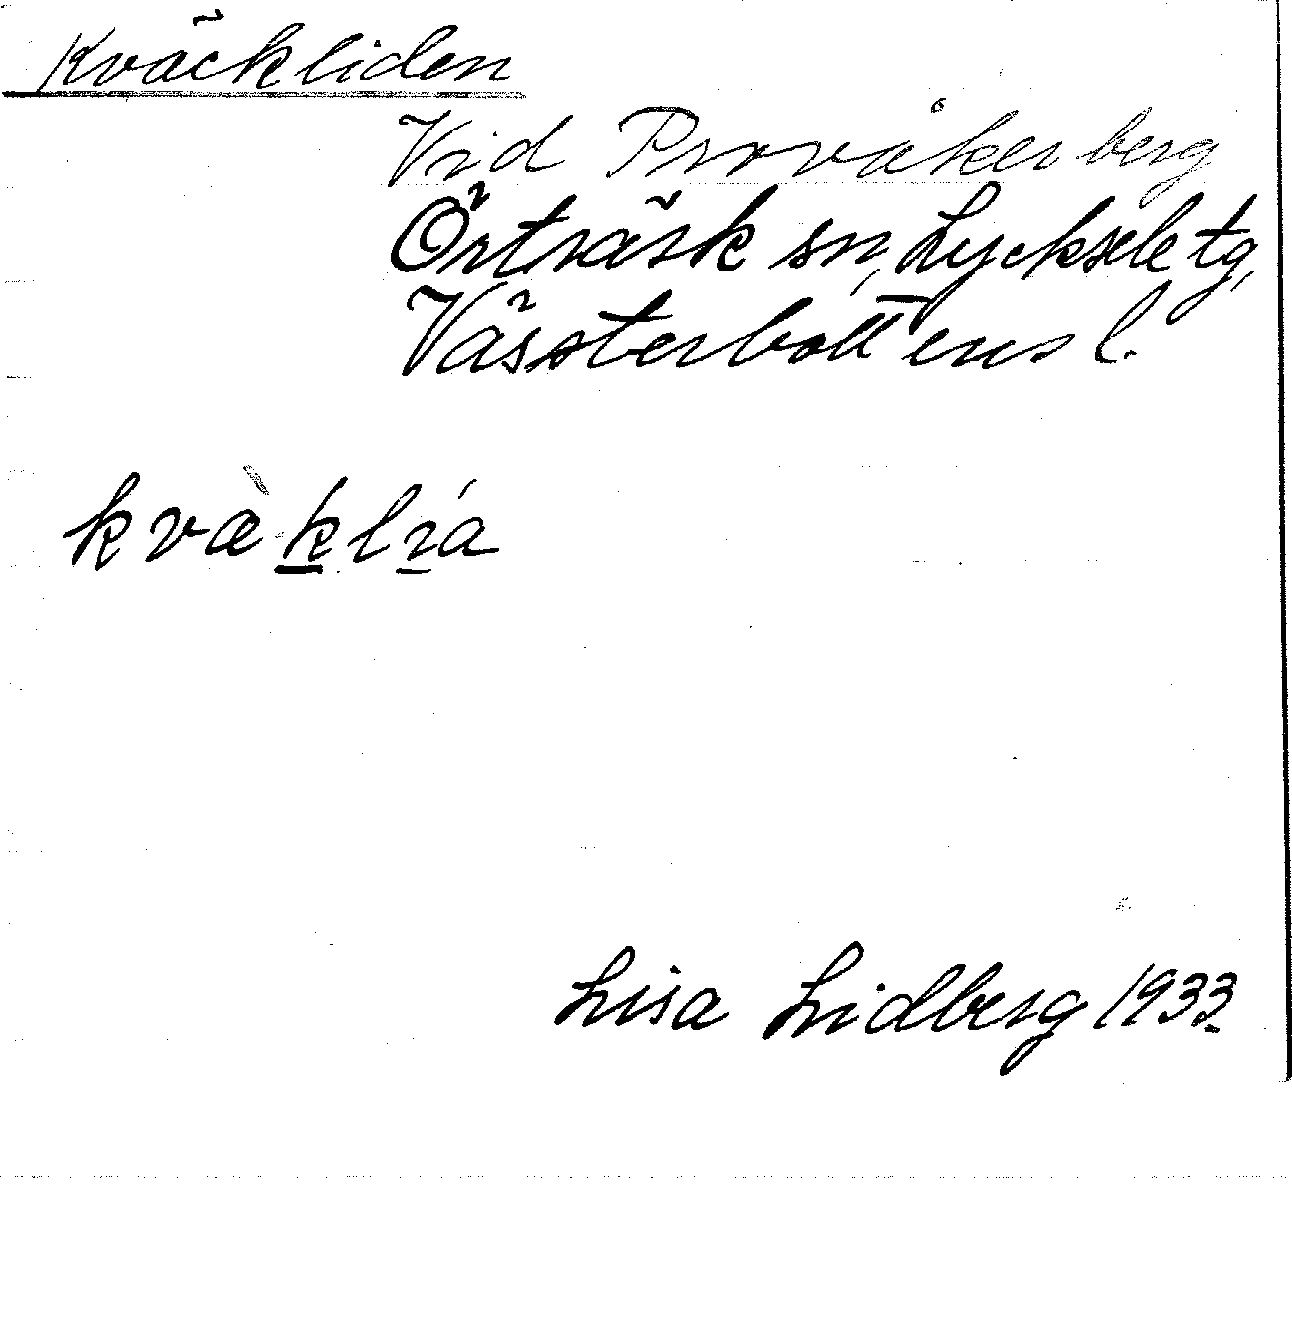 Kväckliden
Vid Provåkerberg
Örträsk sn, Lycksele tg,
Vässterbottens l.
kvæ̀klɩ́a
Lisa Lidberg 1933.